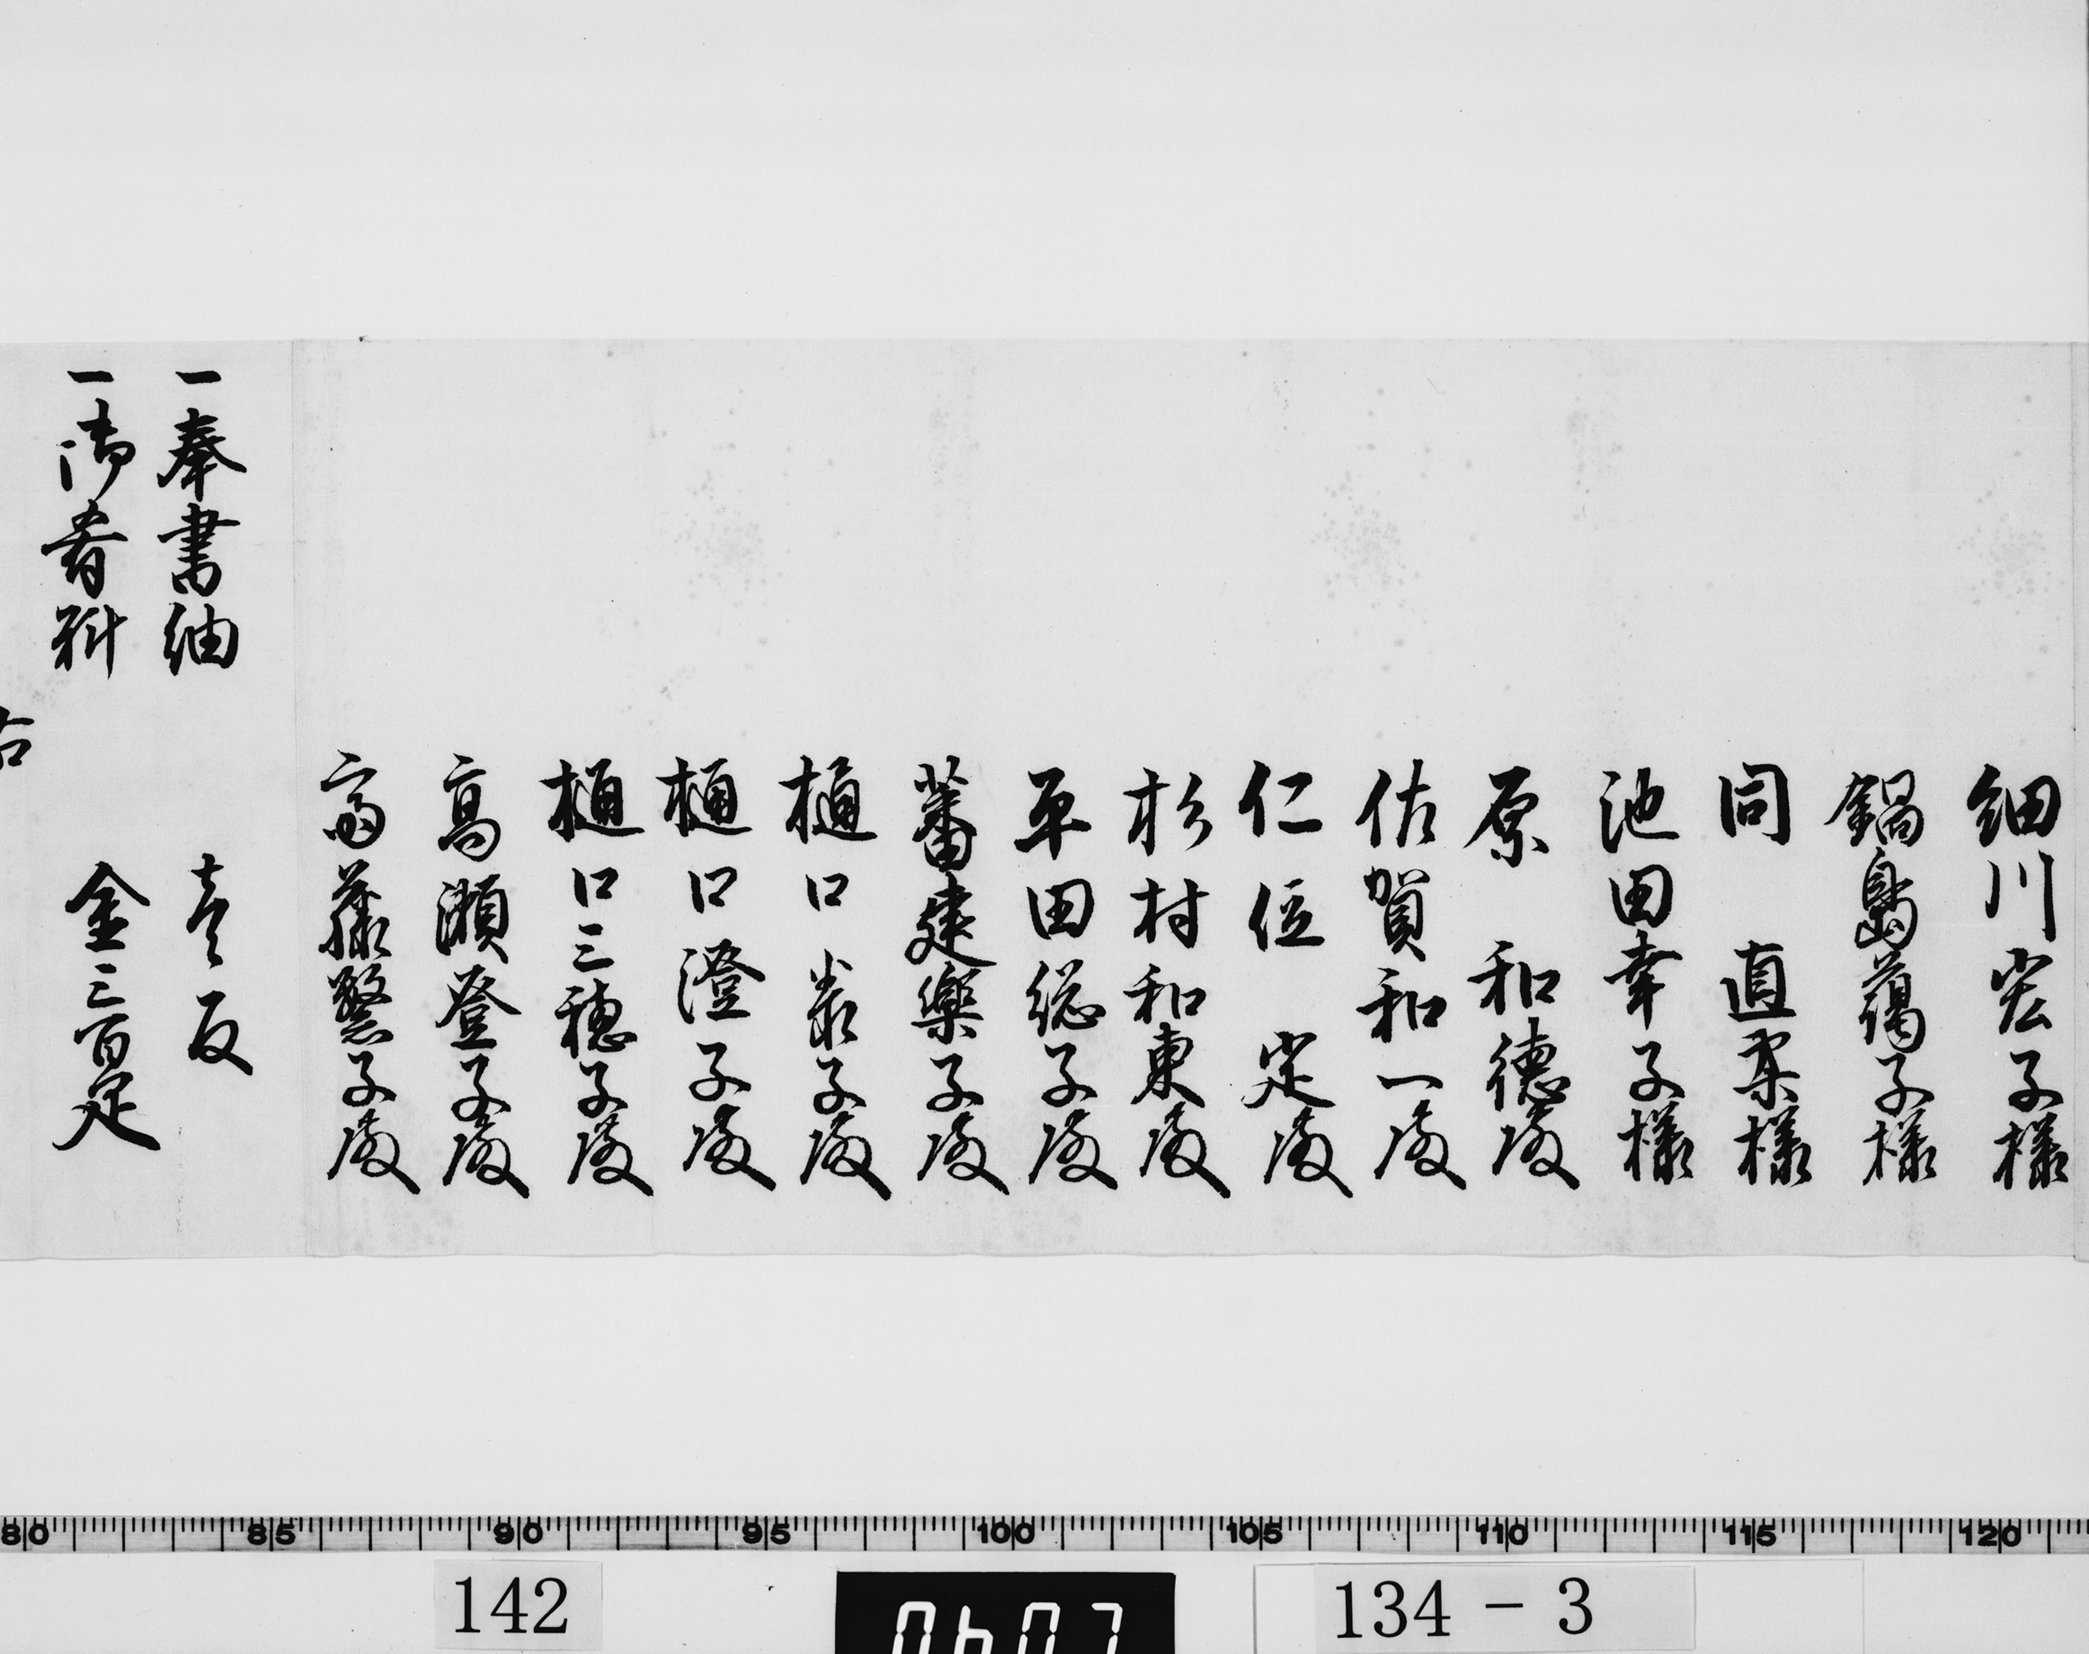 細川宏子様
鍋島藹子様
同　直柔様
池田幸子様
原　和徳殿
佐賀和一殿
仁位　定殿
杉村和東殿
平田総子殿
蕃建樂子殿
樋口叢子殿
樋口澄子殿
樋口三穂子殿
高瀬登子殿
斎藤繁子殿
一奉書紬　壱反
一御肴料　金三百疋
右
80 85 90 95 100 105 110 115 120
142
0607
134-3